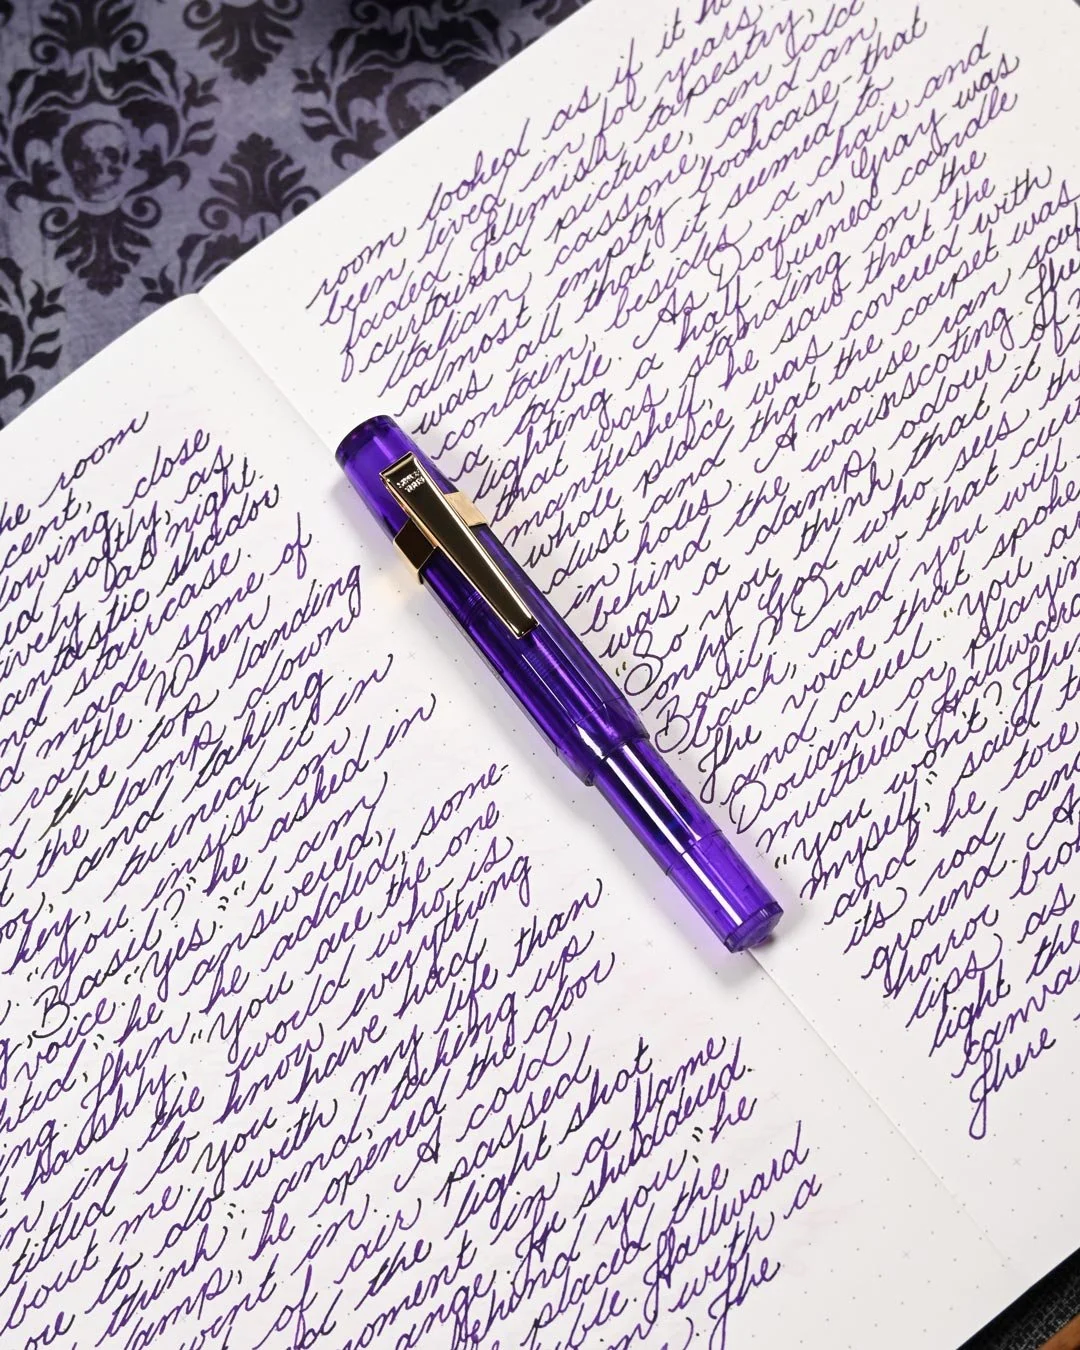 he room
cent,
lowing close
ed softly, as
ively at night.
antastic shadow
nd staircase.
d made some of
rattle. When
d the top landing
t the lamp down
oor, and taking
key, turned it in
"You insist on
g, Basil?" he asked in
voice. "Yes." "I am
hted," he answered,
ing. Then he added, some-
t harshly, "You are the one
n in the world who is
titled to know everything
bout me. You have had
ore to do with my life than
think"; and, taking up
amp, he opened the door
went in. A cold
of air passed
d the light shot
moment in a flame
ange. He shuddered.
behind you," he
placed the
ble. Hallward
im with a
. The
room looked as if it
been lived in for years.
faded Flemish tapestry,
curtained picture, an old
Italian cassone, and an
almost empty bookcase-that
was all that it seemed to
contain, besides a chair and
a table. As Dorian Gray was
lighting a half-burned candle
that was standing on the
mantelshelf, he said that the
whole place was covered with
dust and that the carpet was
in holes. A mouse ran
behind the wainscoting. The
was a damp odour of
"So you think that it
only God who sees the
Basil? Draw that
back, and you will
The voice that spoke
and cruel. "You a
Dorian, or playin
muttered Hallward
"You won't? The
myself," said t
and he tore
its rod and
ground. A
horror bro
lips as
light the
canva
There